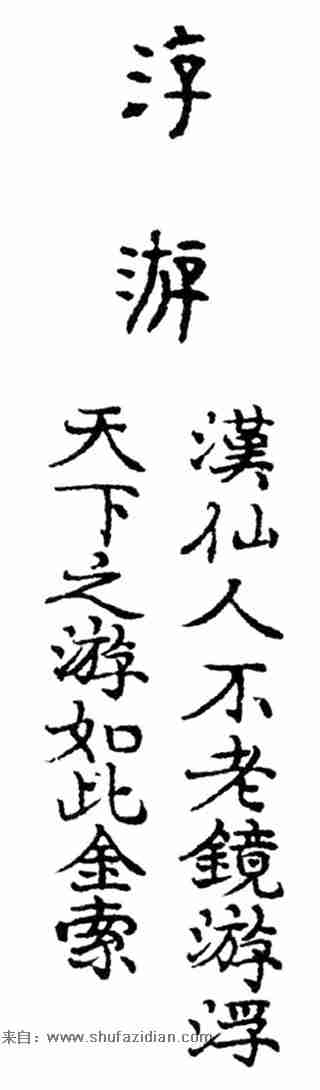 漢仙人不老鏡游浮
天下之游如此金索
来自：www.shufazidian.com